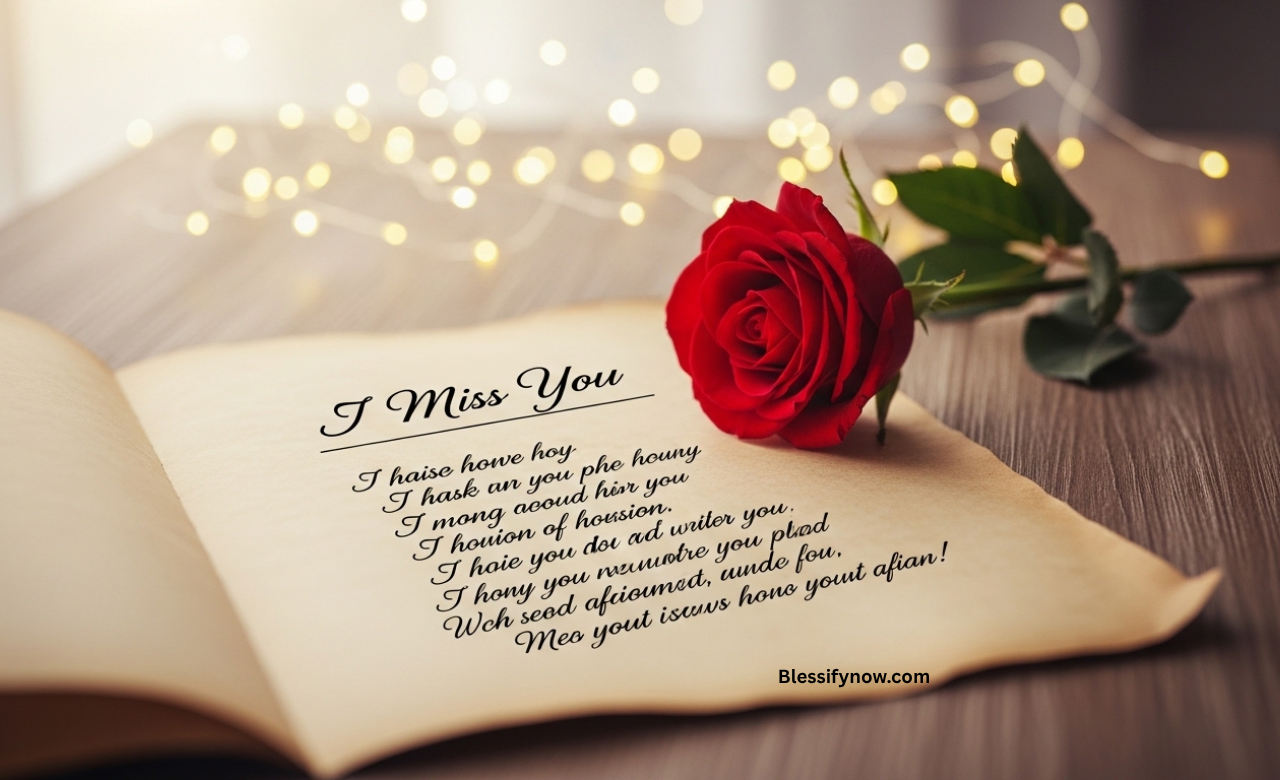 I Miss You
I haise howe hoy
I hask an you phe houny
I mong aeoud hisr you
I houion of housion.
I hoie you dou ad writer you.
I hony you you plod
Wch seed , uunde fou,
Mee yout hono yount afian!
Blessifynow.com